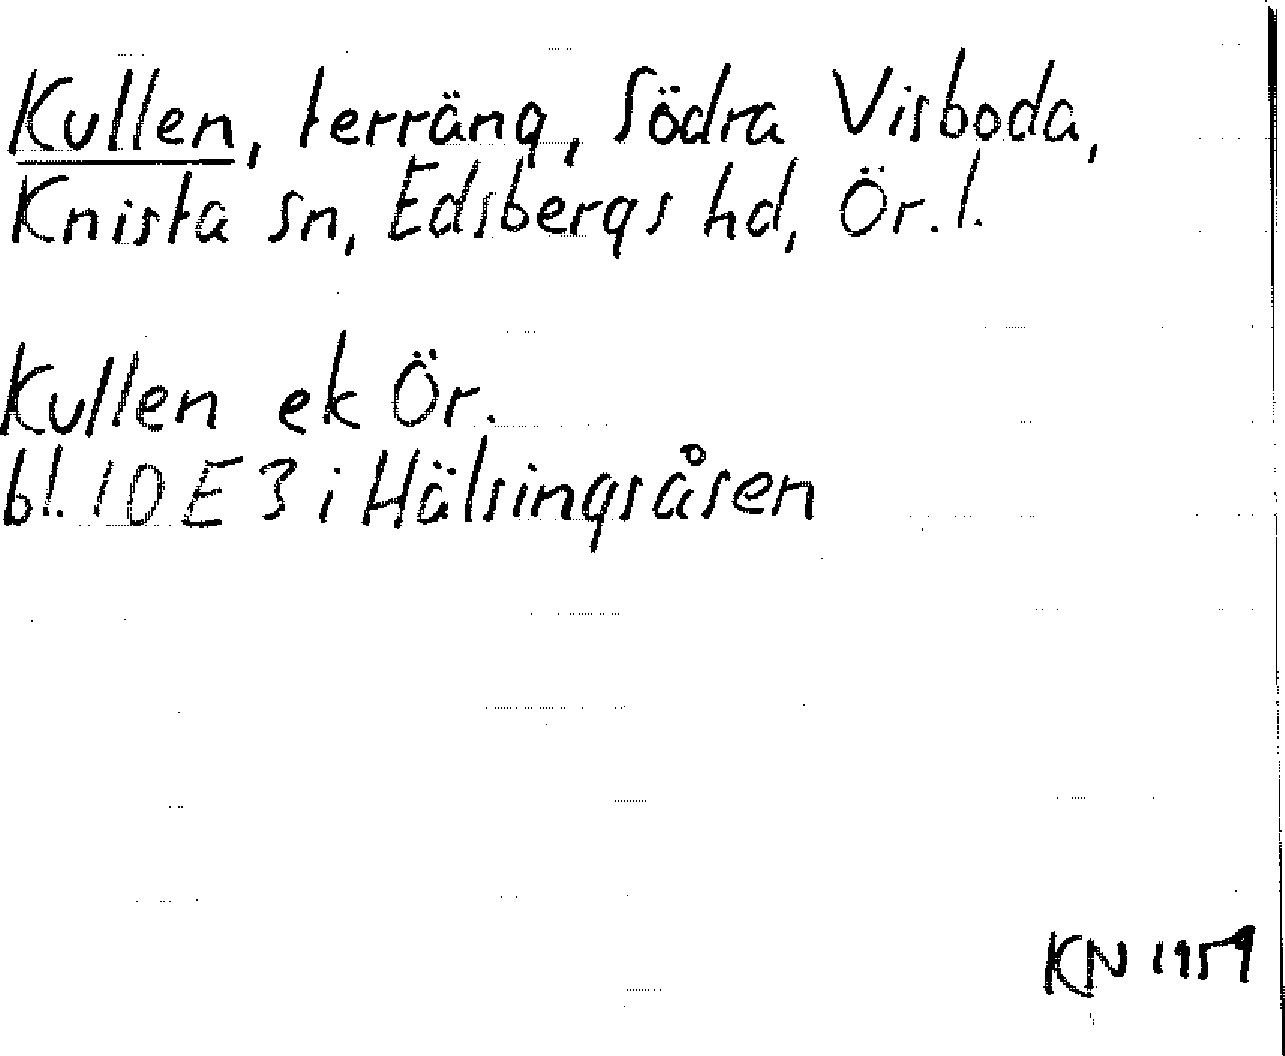 Kullen, terräng, Södra Visboda,
Knista sn, Edsbergs hd, Ör. l.
Kullen ek Ör.
bl. 10 E 3 i Hälsingsåsen
KN 1959